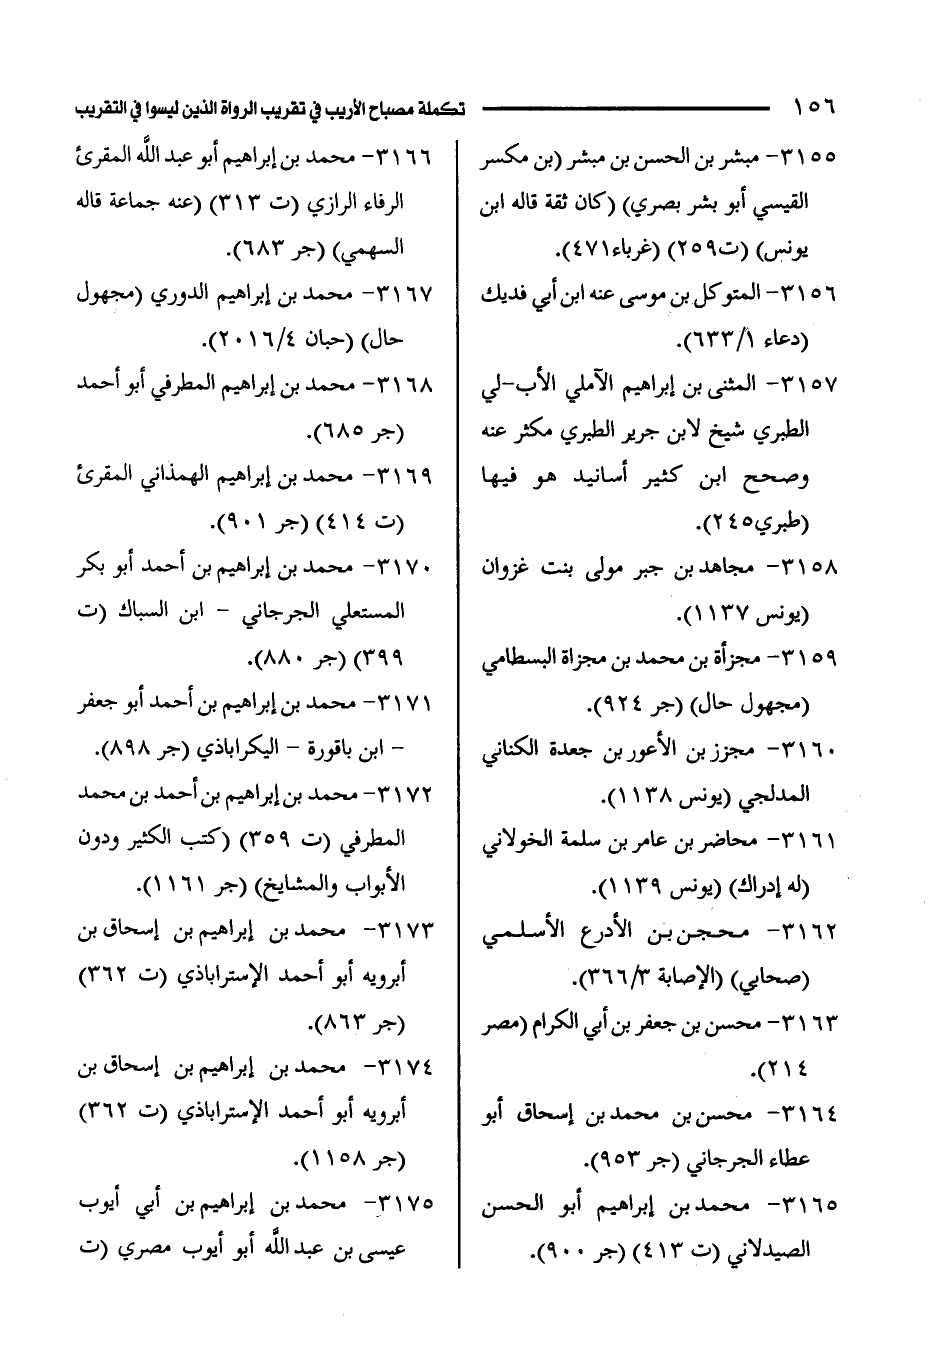 ١٥٦ تكملة مصباح الأريب في تقريب الرواة الذين ليسوا في التقريب
٣١٥٥- مبشر بن الحسن بن مبشر (بن مكسر
القيسي أبو بشر بصري) (كان ثقة قاله ابن
يونس) (ت٢٥٩) (غرباء٤٧١).
٣١٥٦- المتوكل بن موسى عنه ابن أبي فديك
(دعاء ١/ ٦٣٣).
٣١٥٧- المثنى بن إبراهيم الآملي الأب-لي
الطبري شيخ لابن جرير الطبري مكثر عنه
وصحح ابن كثير أسانيد هو فيها
(طبري٢٤٥).
٣١٥٨- مجاهد بن جبر مولى بنت غزوان
(يونس ١١٣٧).
٣١٥٩- مجزأة بن محمد بن مجزاة البسطامي
(مجهول حال) (جر ٩٢٤).
٣١٦٠- مجزز بن الأعور بن جعدة الكناني
المدلجي (يونس ١١٣٨).
٣١٦١- محاضر بن عامر بن سلمة الخولاني
(له إدراك) (يونس ١١٣٩).
٣١٦٢- محجن بن الأدرع الأسلمي
(صحابي) (الإصابة ٣/ ٣٦٦).
٣١٦٣- محسن بن جعفر بن أبي الكرام (مصر
٢١٤).
٣١٦٤- محسن بن محمد بن إسحاق أبو
عطاء الجرجاني (جر ٩٥٣).
٣١٦٥- محمد بن إبراهيم أبو الحسن
الصيدلاني (ت ٤١٣) (جر ٩٠٠).
٣١٦٦- محمد بن إبراهيم أبو عبد اللَّه المقرئ
الرفاء الرازي (ت ٣١٣) (عنه جماعة قاله
السهمي) (جر ٦٨٣).
٣١٦٧- محمد بن إبراهيم الدوري (مجهول
حال) (حبان ٤/ ٢٠١٦).
٣١٦٨- محمد بن إبراهيم المطرفي أبو أحمد
(جر ٦٨٥).
٣١٦٩- محمد بن إبراهيم الهمذاني المقرئ
(ت ٤١٤) (جر ٩٠١).
٣١٧٠- محمد بن إبراهيم بن أحمد أبو بكر
المستعلي الجرجاني - ابن السباك (ت
٣٩٩) (جر ٨٨٠).
٣١٧١- محمد بن إبراهيم بن أحمد أبو جعفر
- ابن باقورة - البكراباذي (جر ٨٩٨).
٣١٧٢- محمد بن إبراهيم بن أحمد بن محمد
المطرفي (ت ٣٥٩) (كتب الكثير ودون
الأبواب والمشايخ) (جر ١١٦١).
٣١٧٣- محمد بن إبراهيم بن إسحاق بن
أبرويه أبو أحمد الإستراباذي (ت ٣٦٢)
(جر ٨٦٣).
٣١٧٤- محمد بن إبراهيم بن إسحاق بن
أبرويه أبو أحمد الإستراباذي (ت ٣٦٢)
(جر ١١٥٨).
٣١٧٥- محمد بن إبراهيم بن أبي أيوب
عيسى بن عبد اللَّه أبو أيوب مصري (ت